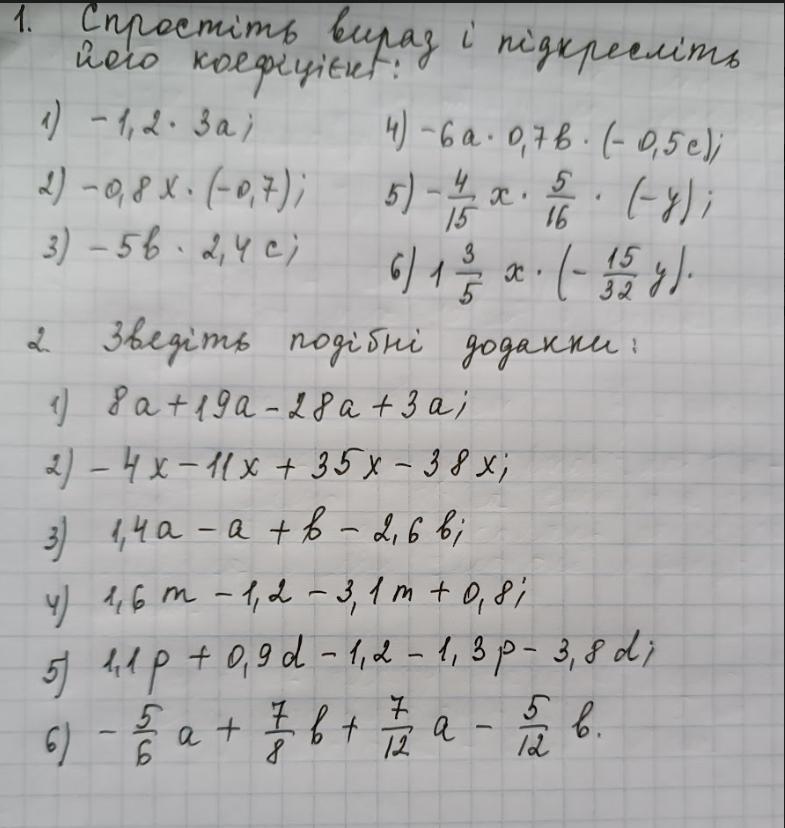 1. Спростіть вираз і підкресліть
його коефіцієнт:
1) -1,2 · 3a;
4) -6a · 0,7b · (-0,5c);
2) -0,8x · (-0,7);
5) -4/15 x · 5/16 · (-y);
3) -5b · 2,4c;
6) 1 3/5 x · (-15/32 y).
2. Зведіть подібні доданки:
1) 8a + 19a - 28a + 3a;
2) -4x - 11x + 35x - 38x;
3) 1,4a - a + b - 2,6b;
4) 1,6m - 1,2 - 3,1m + 0,8;
5) 1,1p + 0,9d - 1,2 - 1,3p - 3,8d;
6) -5/6 a + 7/8 b + 7/12 a - 5/12 b.